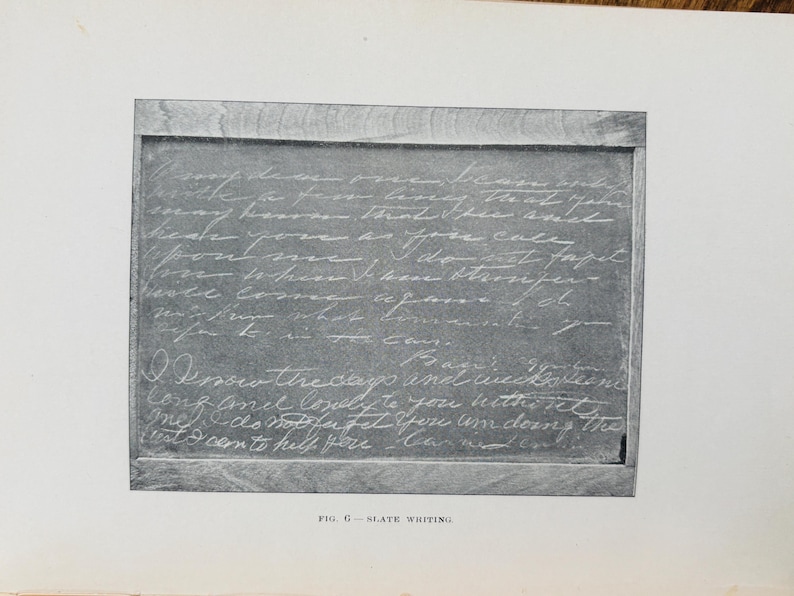 my dear one, I can only
write a few lines that you
may know that I see and
hear you as you call
upon me I do not forget
you when I am stronger
will come again I do
not know what conversation you
refer to in
I know the days and weeks seem
long and lonely to you without
me I do not forget you am doing the
best I can to help you
FIG. 6 — SLATE WRITING.